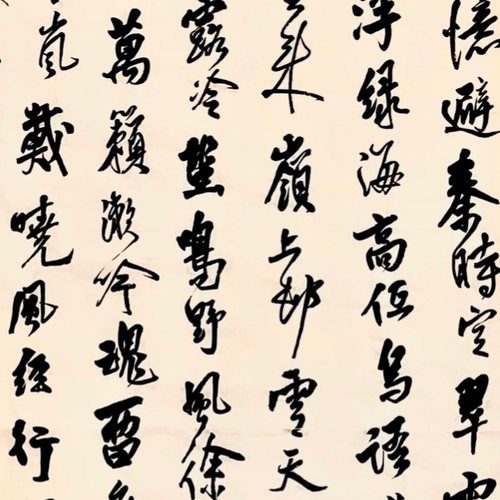 憶避秦時空翠
浮綠海高低鳥語
來嶺上村雲天
露冷蛩鳴野風徐
萬籟漱吟魂留
嵐戴曉風經行